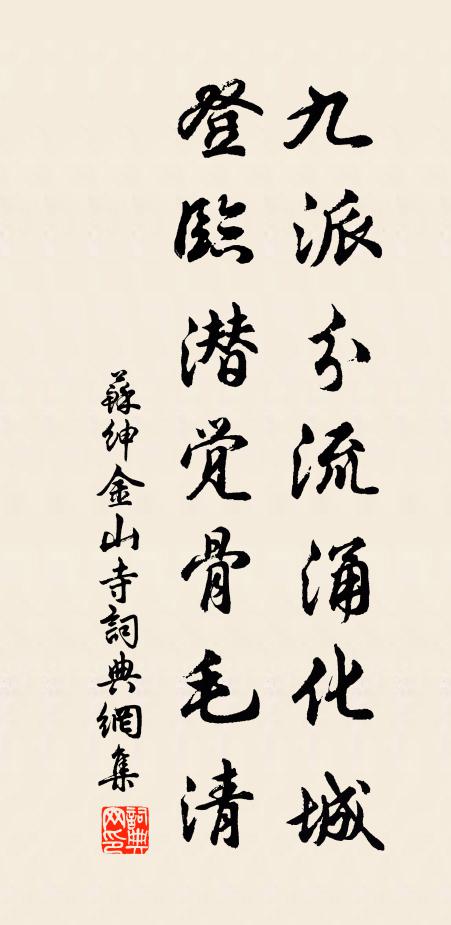 九派分流涌化城
登臨潜觉骨毛清
蘇紳金山寺詞典網集
詞典
网印